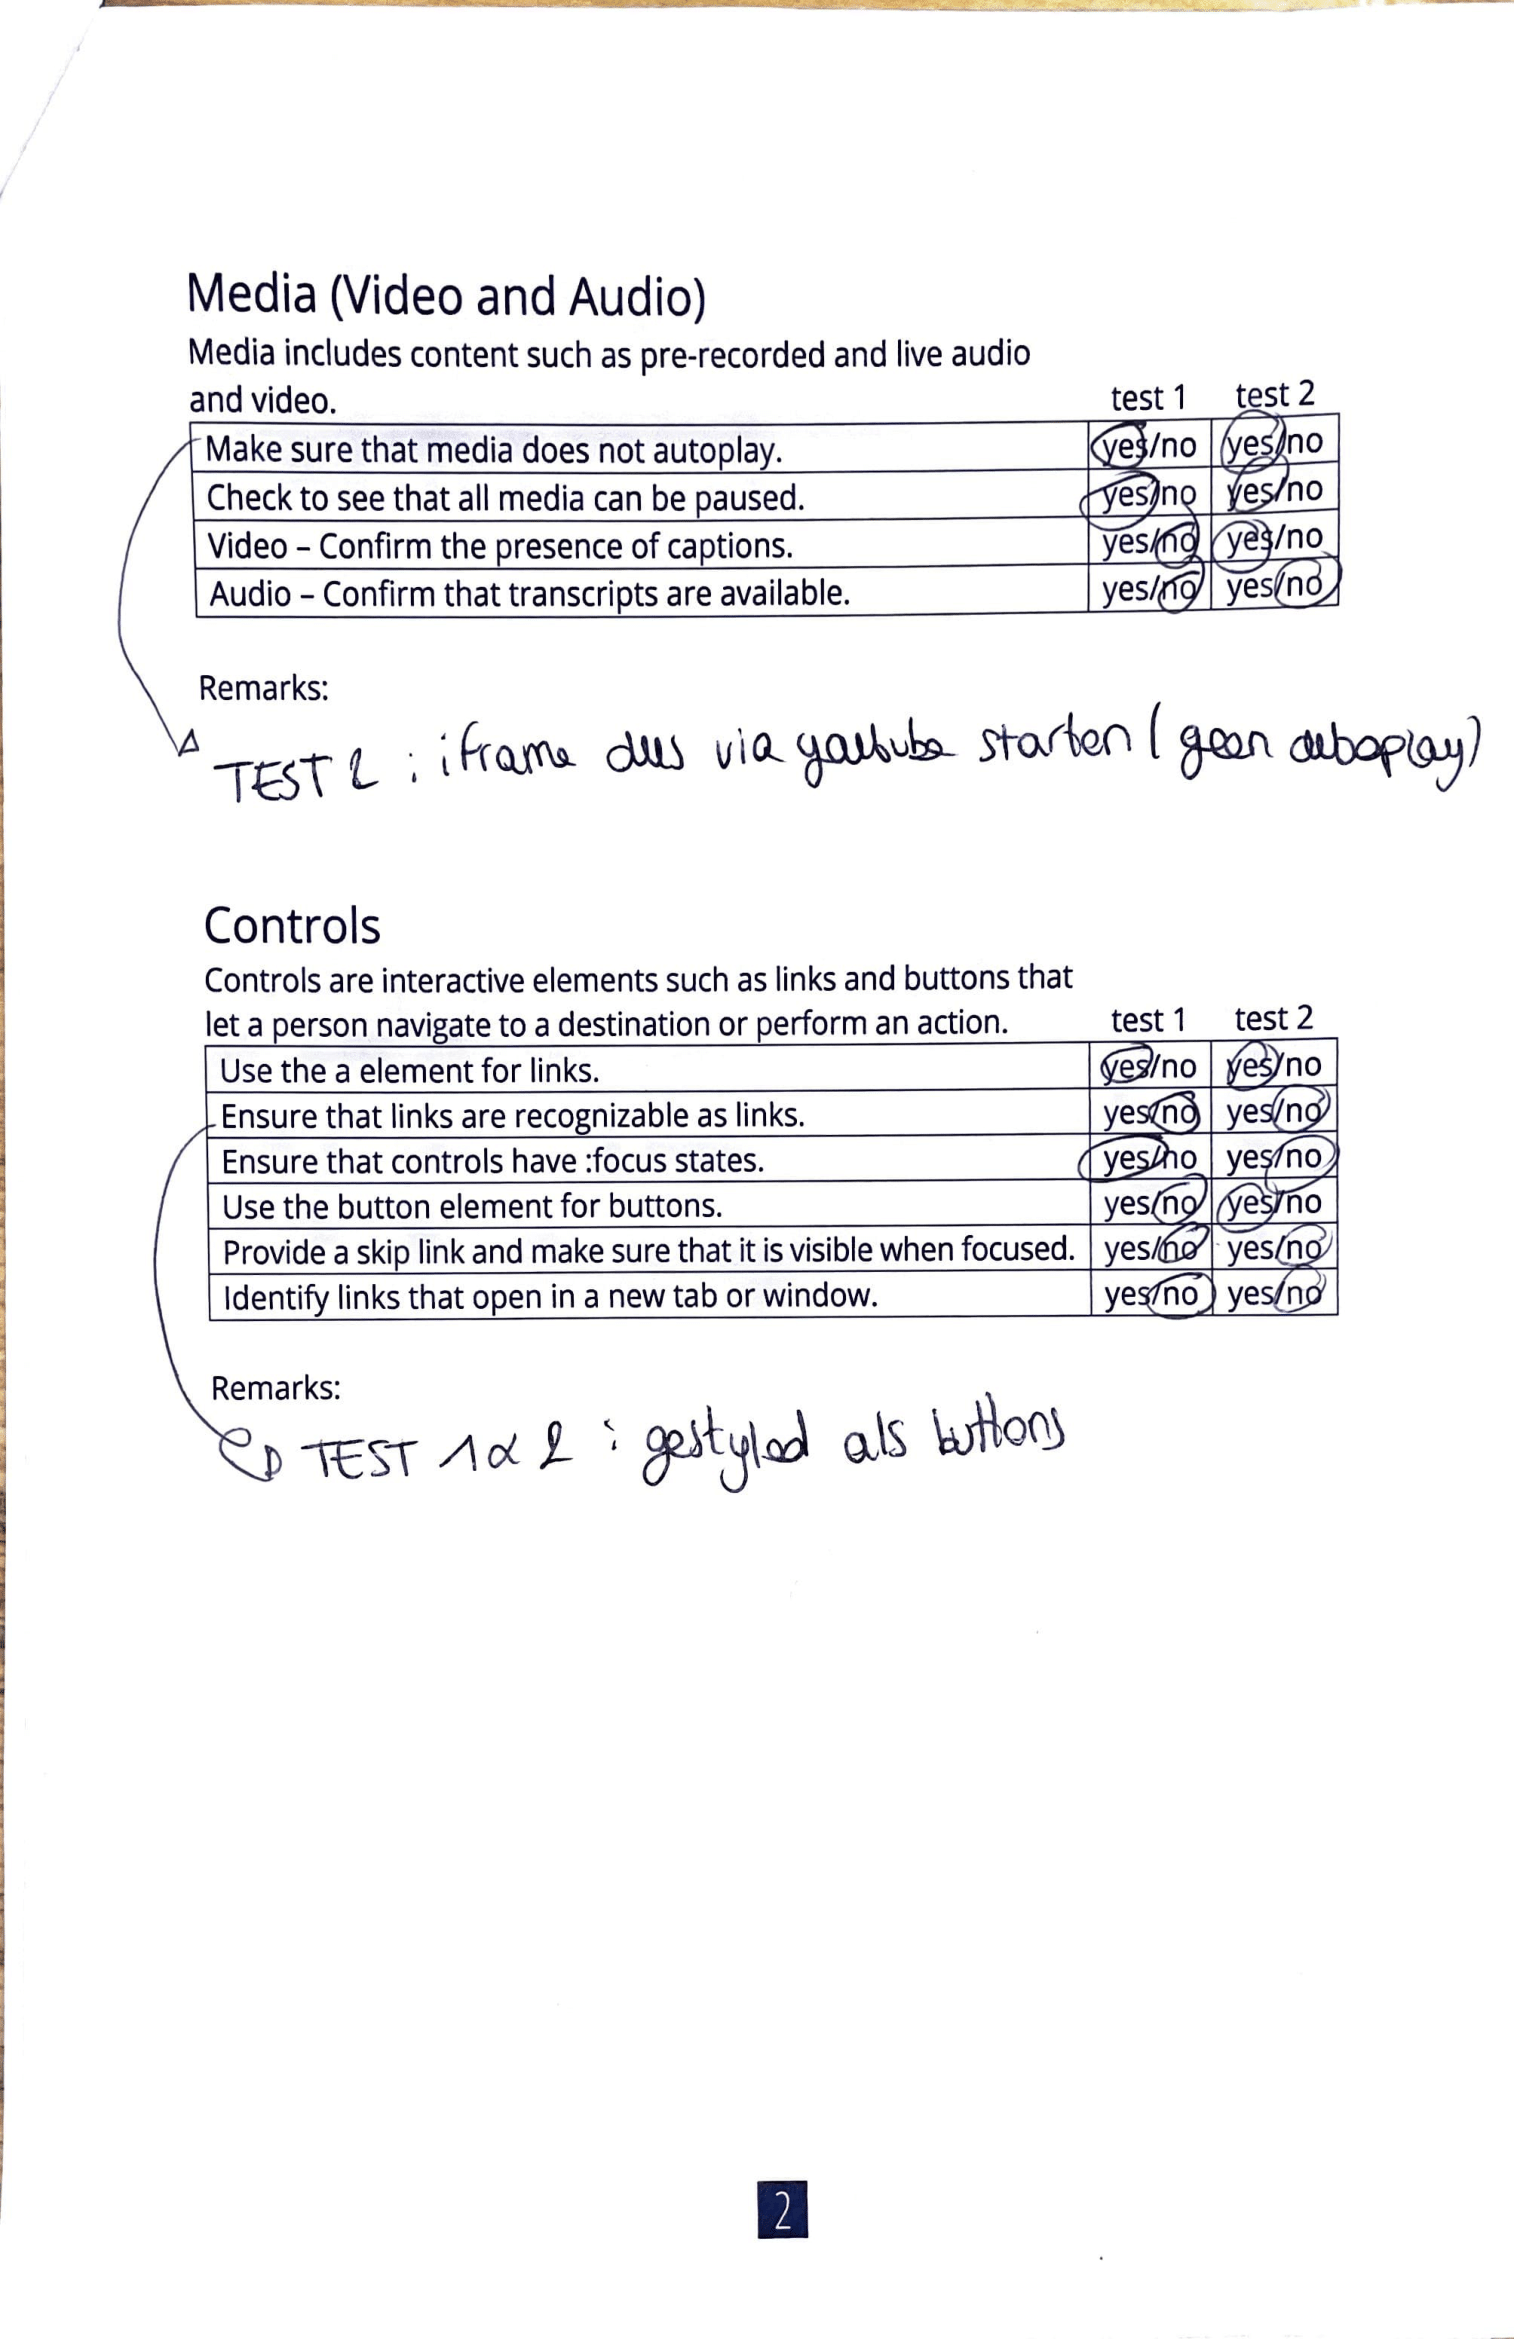 Media (Video and Audio)
Media includes content such as pre-recorded and live audio
and video. test 1 test 2
Make sure that media does not autoplay. yes/no yes/no
Check to see that all media can be paused. yes/no yes/no
Video – Confirm the presence of captions. yes/no yes/no
Audio – Confirm that transcripts are available. yes/no yes/no
Remarks:
TEST 2 : iframe dus via youtube starten (geen autoplay)
Controls
Controls are interactive elements such as links and buttons that
let a person navigate to a destination or perform an action. test 1 test 2
Use the a element for links. yes/no yes/no
Ensure that links are recognizable as links. yes/no yes/no
Ensure that controls have :focus states. yes/no yes/no
Use the button element for buttons. yes/no yes/no
Provide a skip link and make sure that it is visible when focused. yes/no yes/no
Identify links that open in a new tab or window. yes/no yes/no
Remarks:
TEST 1 & 2 : gestyled als buttons
2